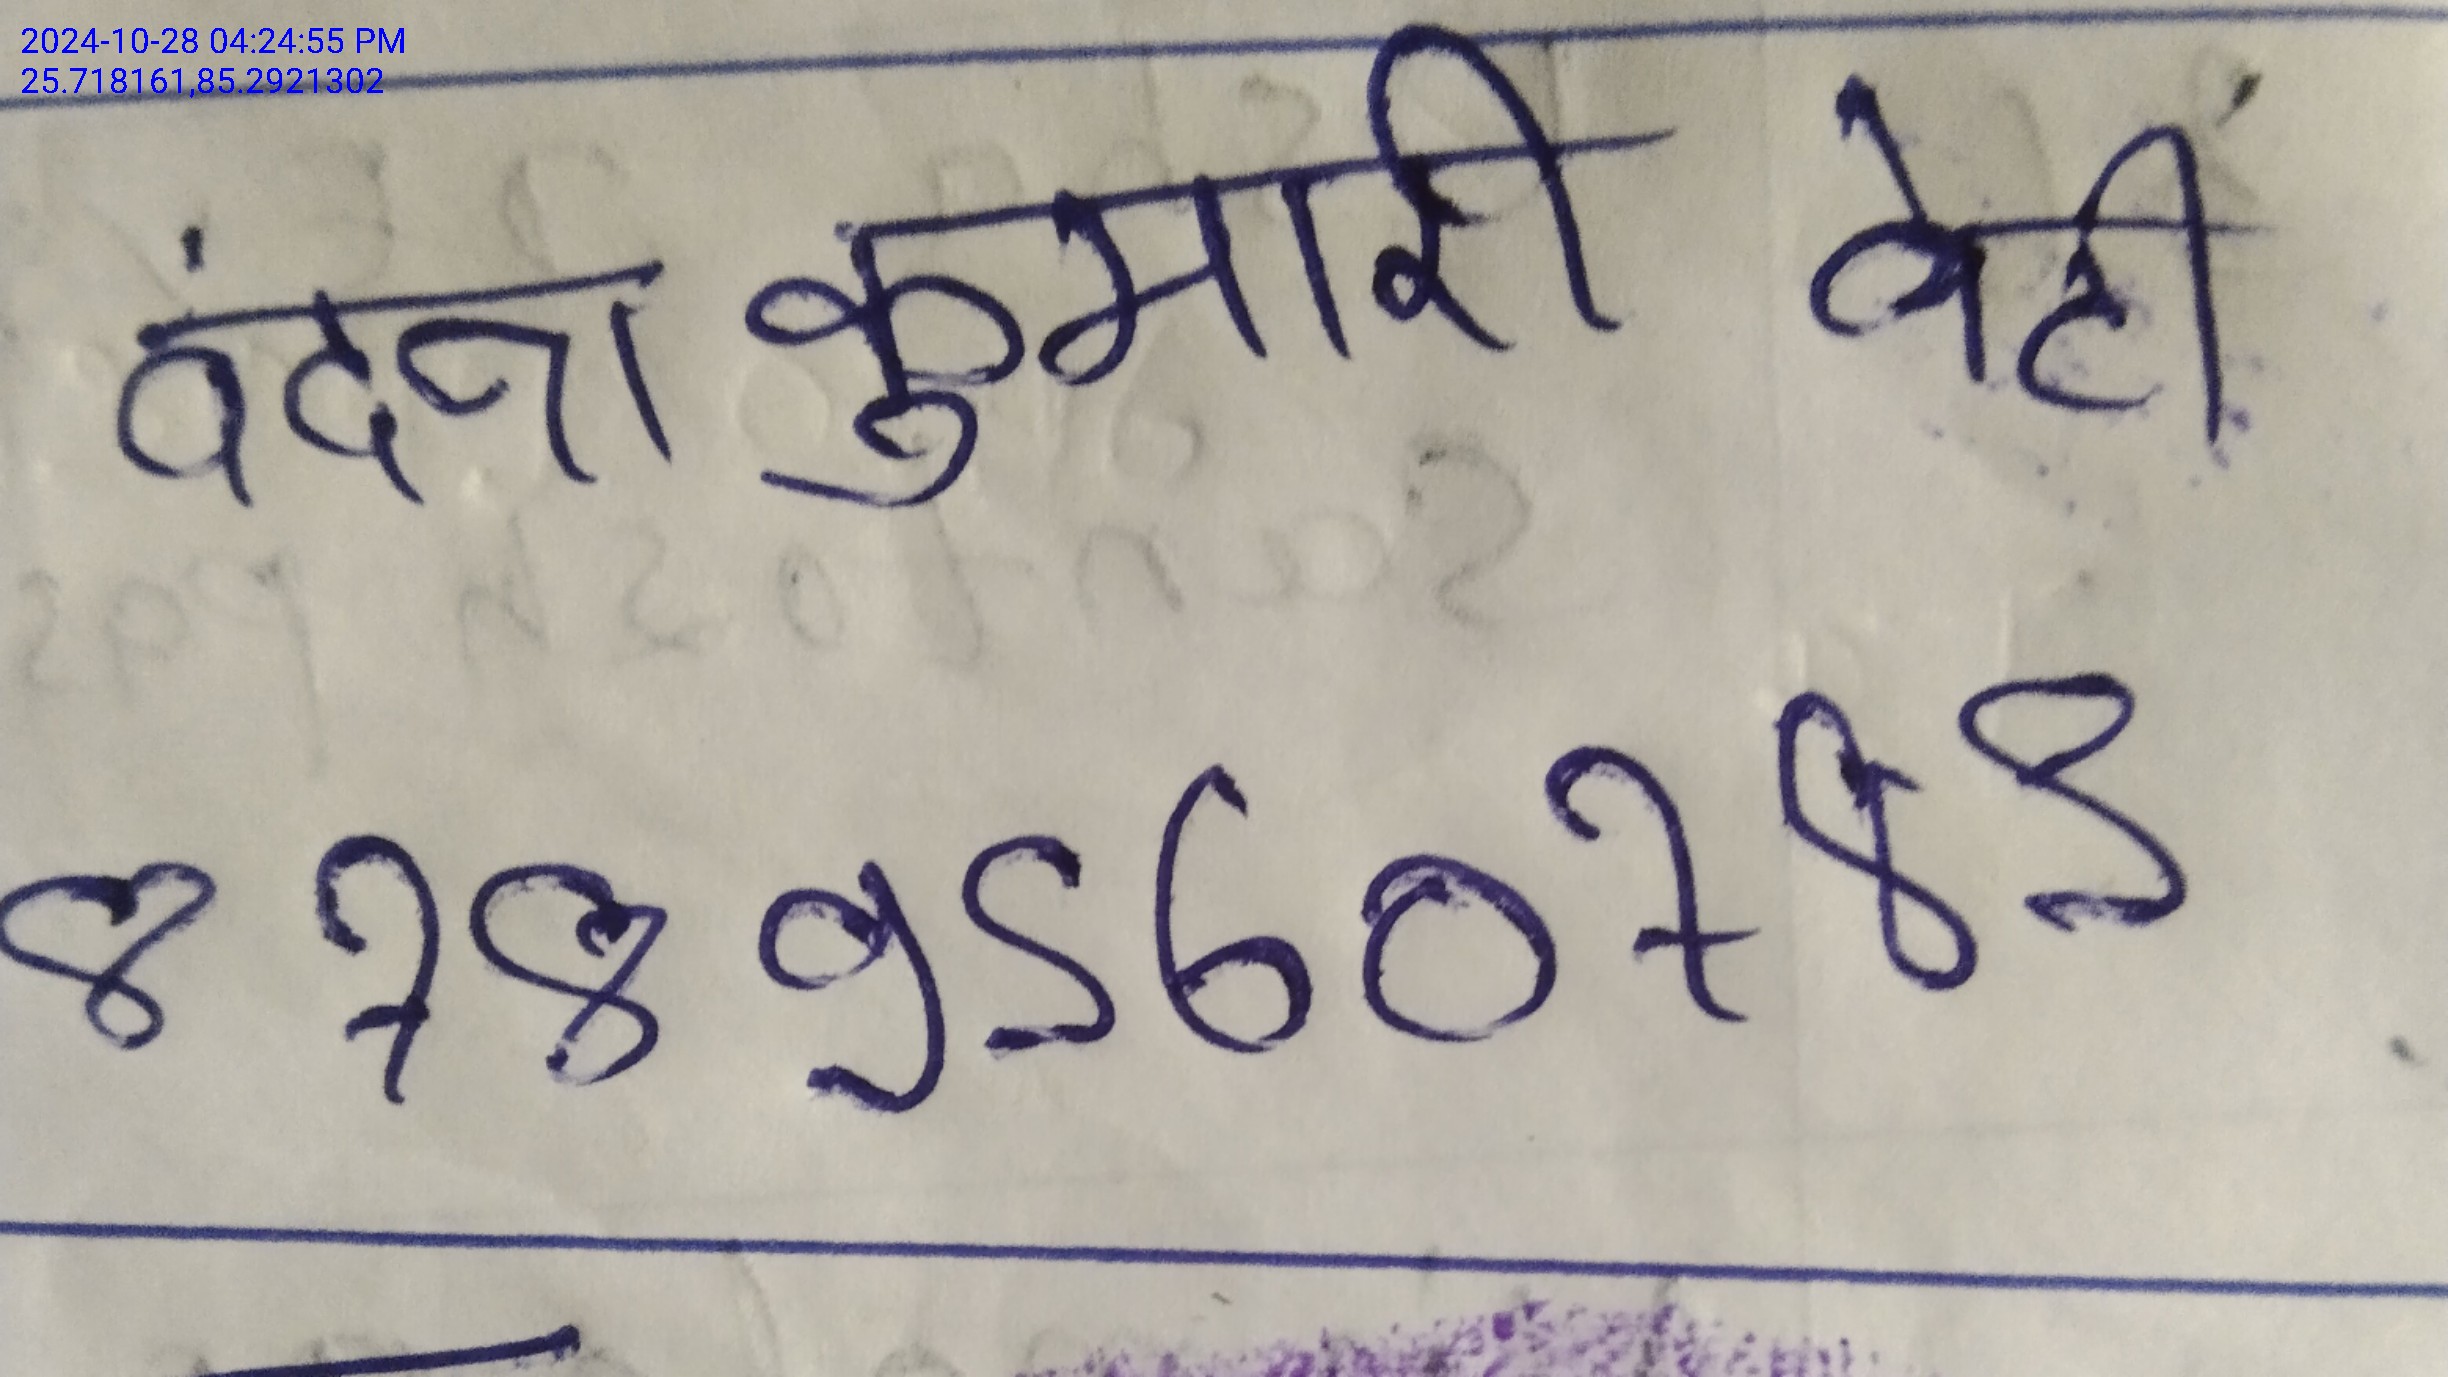 2024-10-28 04:24:55 PM
25.718161,85.2921302
वंदना कुमारी वेटी
8789560785